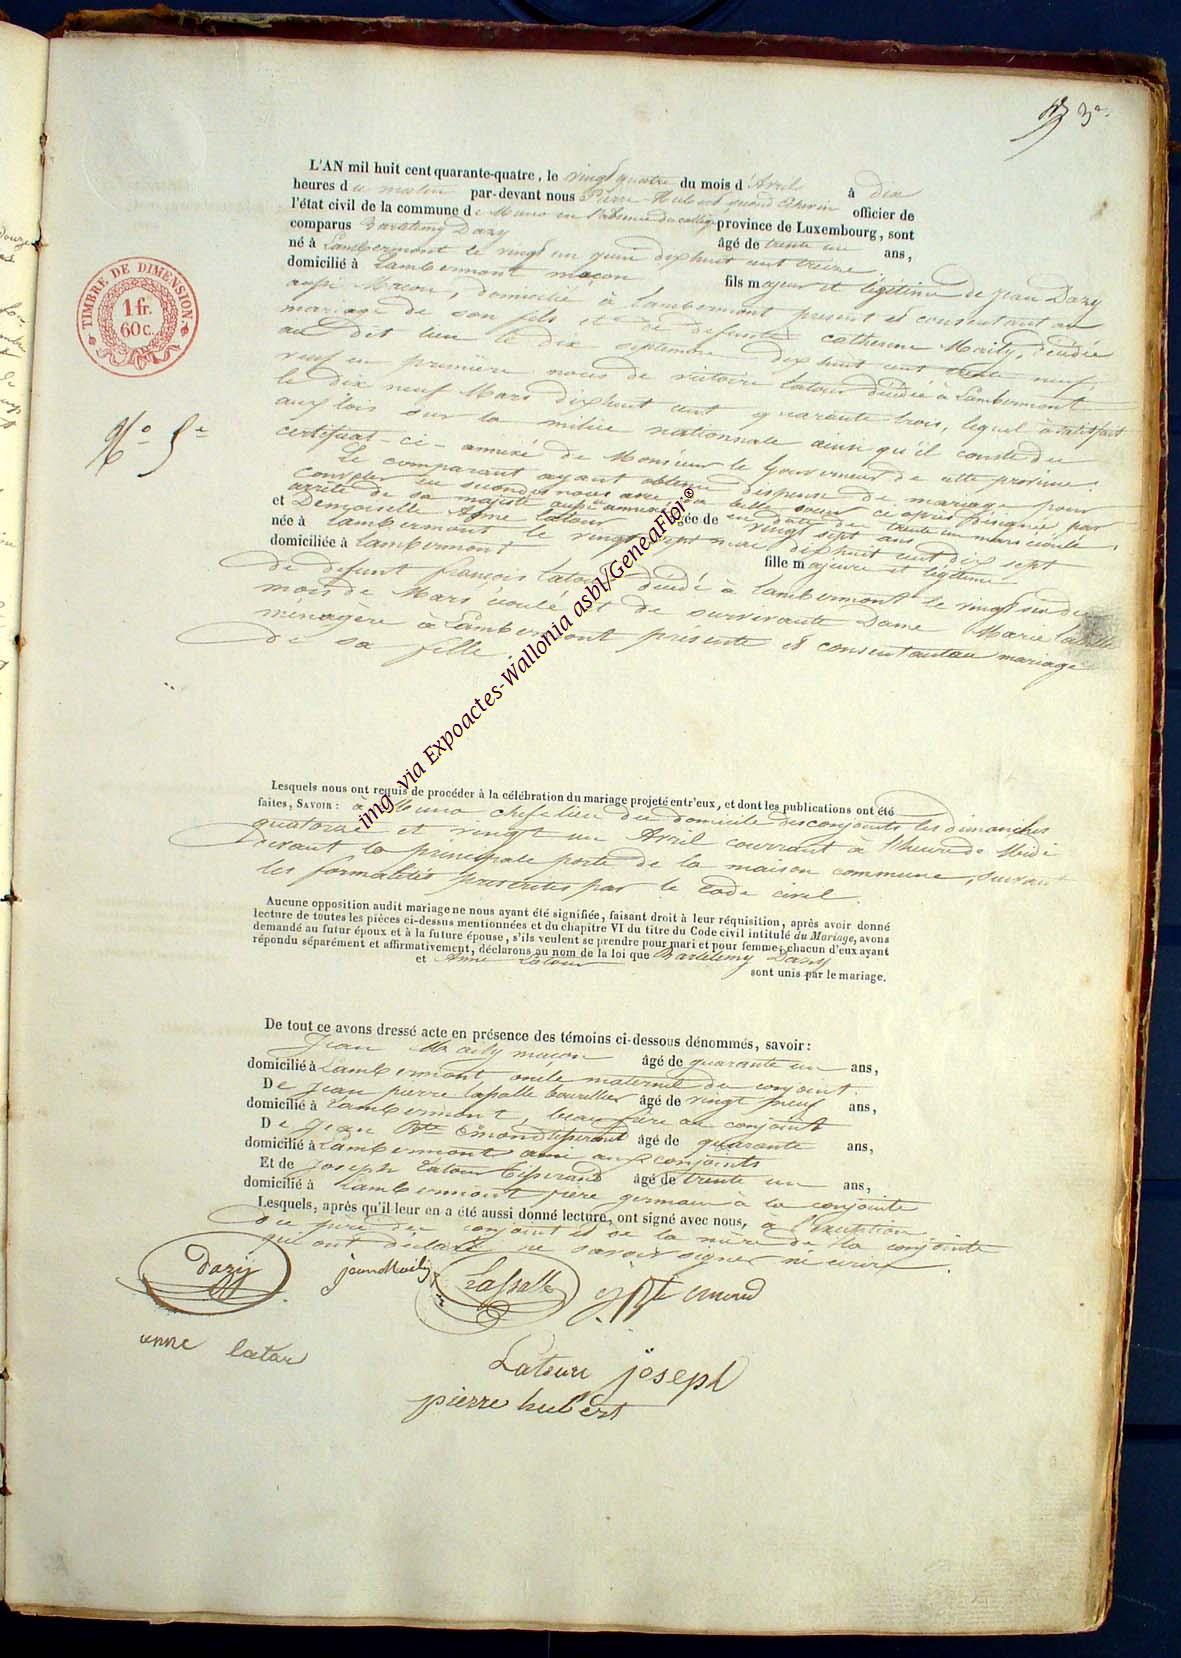 3e
L'AN mil huit cent quarante-quatre, le vingt quatre du mois d'Avril à dix
heures du matin par-devant nous Pierre Hubert, second Echevin officier de
l'état civil de la commune de Muno en l'absence du collège province de Luxembourg, sont
comparus Bartelemy Dazy âgé de trente un ans,
né à Lambermont le vingt un juin dixhuit cent treize
domicilié à Lambermont maçon fils majeur et légitime de Jean Dazy
aussi Macon, domicilié à Lambermont présent et consentant au
mariage de son fils et de défunte Catherine Maily, décédée
au dit lieu le dix septembre dixhuit cent neuf,
veuf en première noces de victoire Latour décédée à Lambermont
le dix neuf Mars dixhuit cent quarante trois, lequel à satisfait
aux lois sur la milice nationnale ainsi qu'il conste du
certificat ci-annéxé de Monsieur le Gouverneur de cette province.
Le comparant ayant obtenu dispense de mariage pour
convoler en secondes noces avec sa belle soeur ci après désignée par
arrêté de sa majesté aussi annexé en date du trente un mars écoulé,
et Demoiselle Anne Latour âgée de vingt sept ans
née à Lambermont le vingt mai dixhuit cent dix sept
domiciliée à Lambermont fille majeure et légitime
de défunt françois Latour décédé à Lambermont le vingt six du
mois de Mars écoulé et de survivante Dame Marie
ménagère à Lambermont présente et consentant au mariage
de sa fille.
TIMBRE DE DIMENSION
1 fr.
60 c.
No 5e
img via Expoactes-Wallonia asbl/GeneaFloi®
Lesquels nous ont requis de procéder à la célébration du mariage projeté entr'eux, et dont les publications ont été
faites, SAVOIR : à Muno chef lieu du domicile des conjoints les dimanches
quatorze et vingt un Avril courrant à l'heure de Midi
devant la principale porte de la maison commune, suivant
les formalités prescrites par le Code civil.
Aucune opposition audit mariage ne nous ayant été signifiée, faisant droit à leur réquisition, après avoir donné
lecture de toutes les pièces ci-dessus mentionnées et du chapitre VI du titre du Code civil intitulé du Mariage, avons
demandé au futur époux et à la future épouse, s'ils veulent se prendre pour mari et pour femme; chacun d'eux ayant
répondu séparément et affirmativement, déclarons au nom de la loi que Bartelemy Dazy
et Anne Latour sont unis par le mariage.
De tout ce avons dressé acte en présence des témoins ci-dessous dénommés, savoir :
Jean Maily maçon âgé de quarante un ans,
domicilié à Lambermont oncle maternel du conjoint.
De Jean pierre Lasalle bourellier âgé de vingt neuf ans,
domicilié à Lambermont, beau frère au conjoint
De Jean Bte Emond tisserand âgé de quarante ans,
domicilié à Lambermont ami aux conjoints
Et de Joseph Latour tisserand âgé de trente un ans,
domicilié à Lambermont frère germain à la conjointe
Lesquels, après qu'il leur en a été aussi donné lecture, ont signé avec nous, à l'exception
du père du conjoint et de la mère de la conjointe
qui ont déclaré ne savoir signer ni ecrire.
Dazij jean Maily Lassalle jn Bte emond
anne latour
Latour joseph
pierre hubert